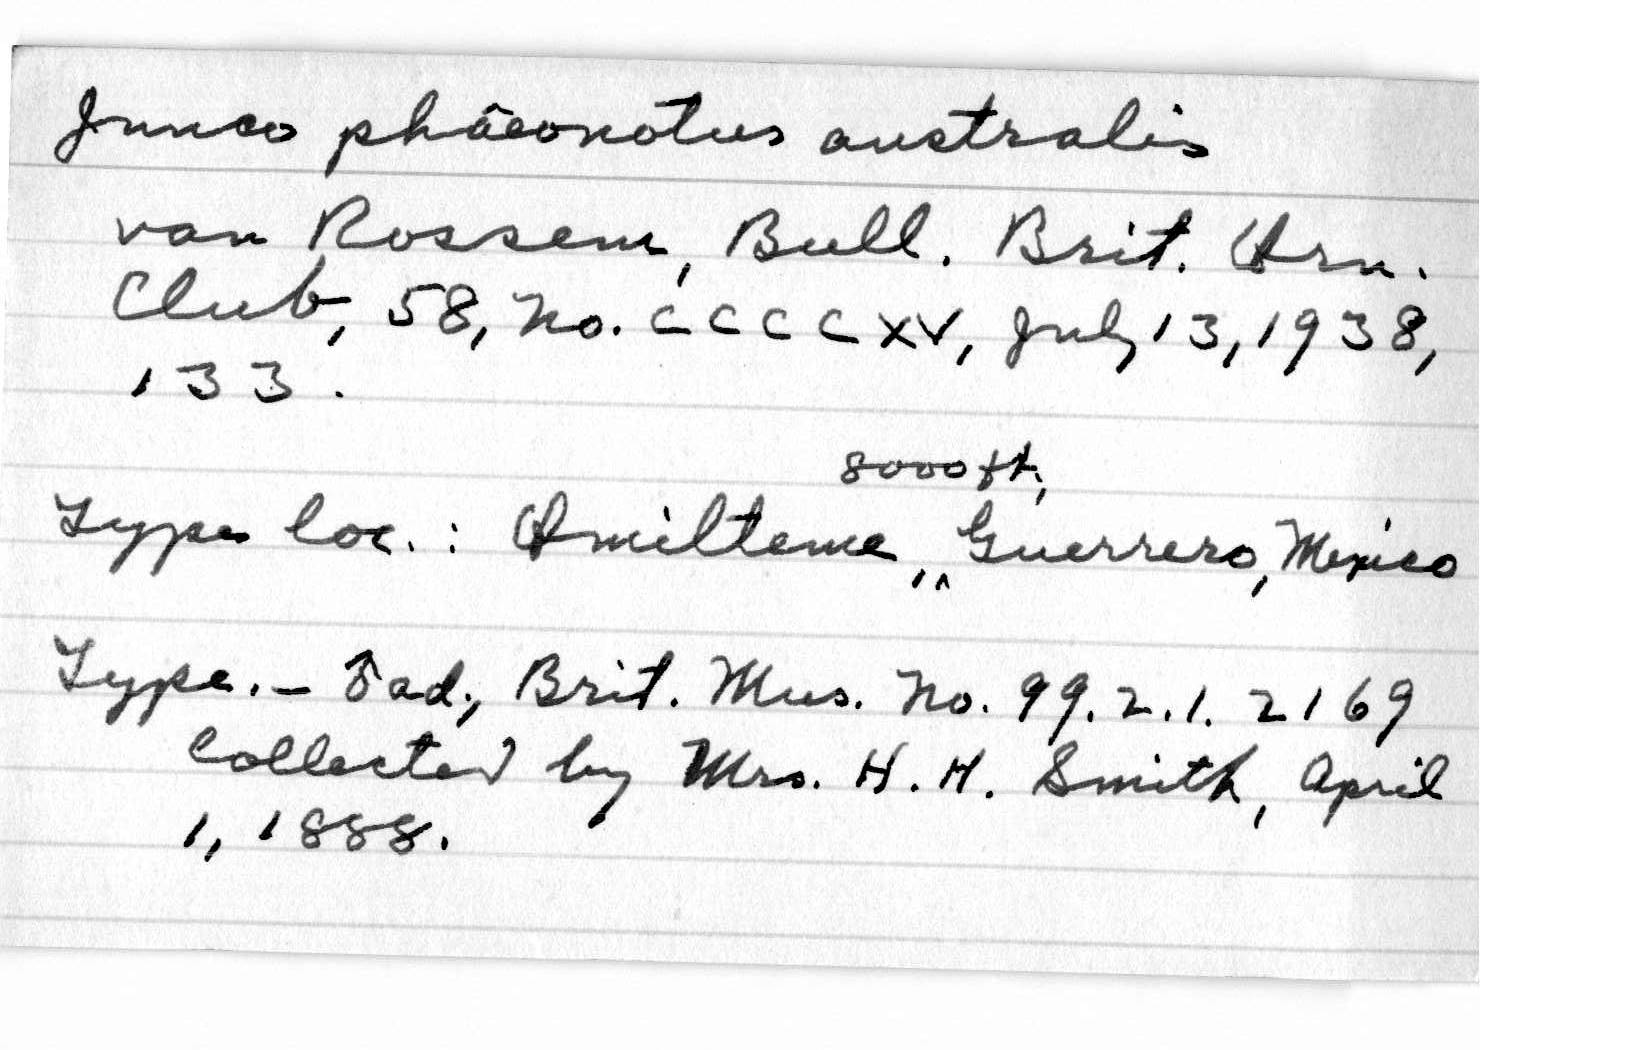 Junco phâeonotus australis
van Rossem, Bull. Brit. Orn.
Club, 58, No. CCCCXV, July 13, 1938,
133.
8000 ft,
Type loc.: Omilteme, ^ Guerrero, Mexico
Type.- ♂ ad., Brit. Mus. No. 99.2.1.2169
Collected by Mrs. H. H. Smith, April
1, 1888.